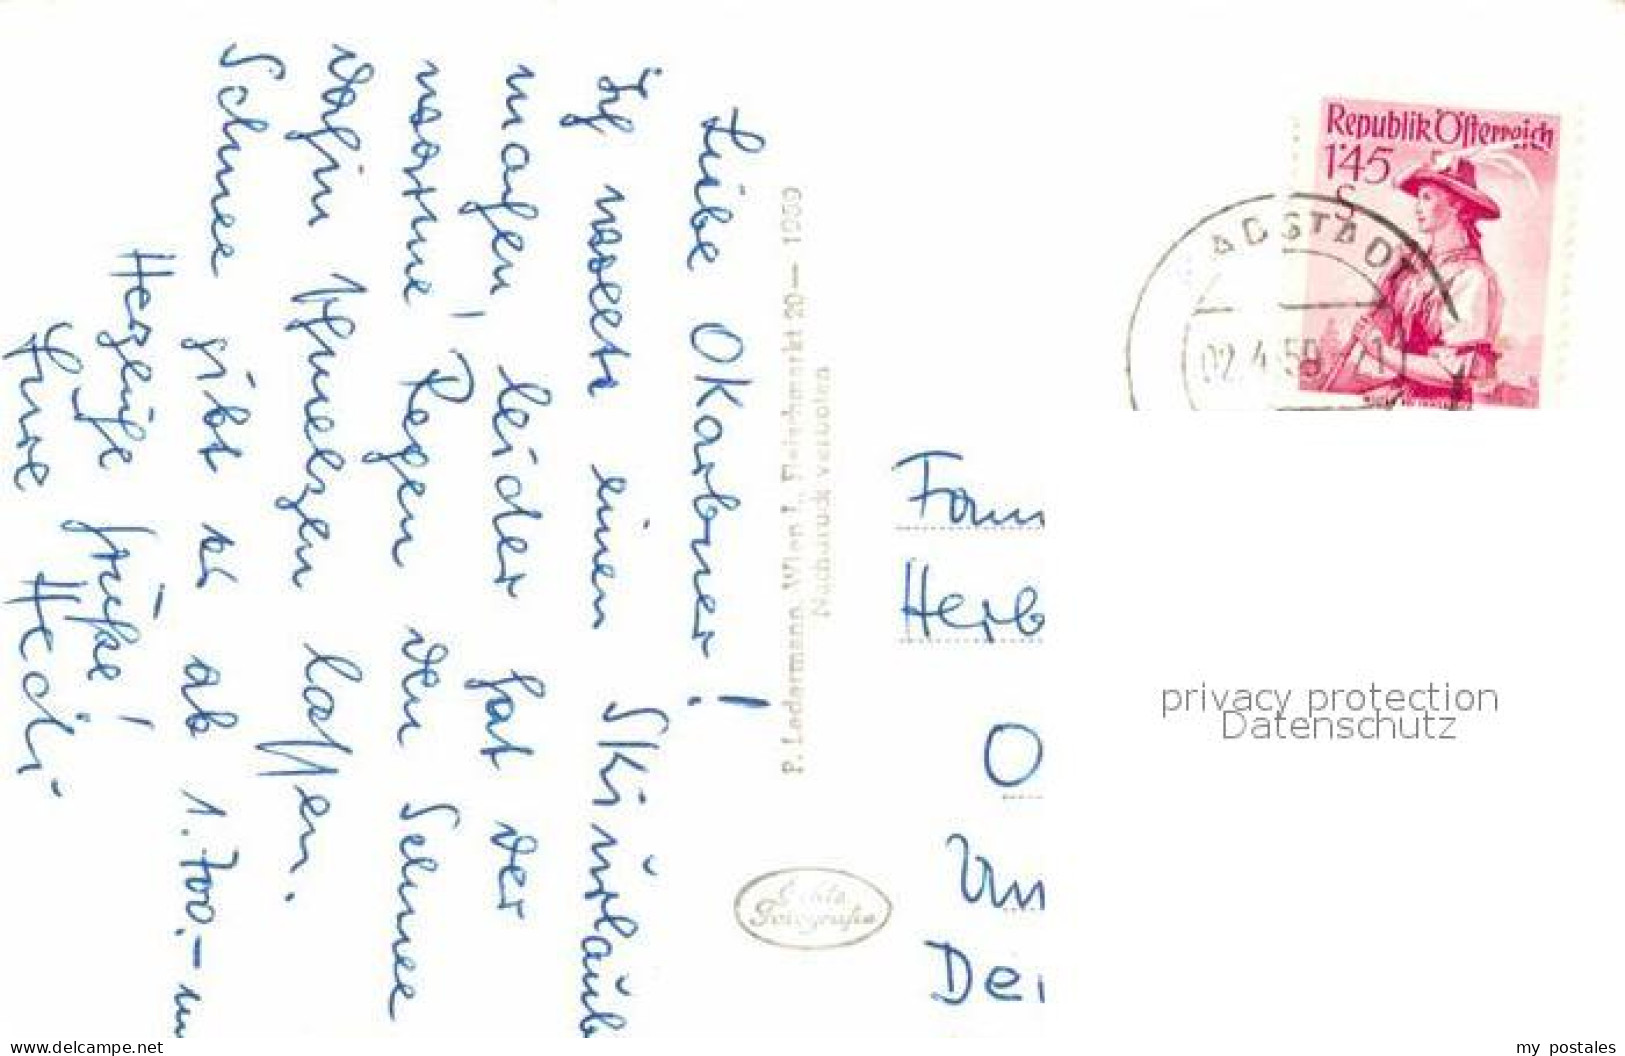 Liebe OKarbner!
Ich wollte einen Skiurlaub
machen, leider hat der
warme Regen den Schnee
dahin schmelzen lassen.
Schnee gibt es ab 1.700.- m
Herzliche Grüße!
Ihre Hedi
P. Ledermann, Wien I., Fleischmarkt 20— 1959
Nachdruck verboten
Echte
Fotografie
Republik Österreich
1'45
S
ADSTADT
02.4.59
Fam
Herb
O
Un
privacy protection
Datenschutz
www.delcampe.net
my_postales